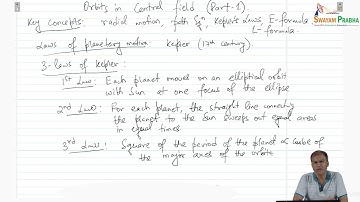 Orbits in Central field (Part-1)
SWAYAM PRABHA
Key Concepts: radial motion, path Eqn, Kepler's Laws, E-formula
L-formula
Laws of planetary motion Kepler (17th century).
3-laws of Kepler:
1st Law: Each planet moves on an elliptical orbit
with Sun at one focus of the ellipse
2nd Law: For each planet, the straight line connecting
the planet to the Sun sweeps out equal areas
in equal times
3rd Law: Square of the period of the planet ∝ cube of
the major axes of the orbits